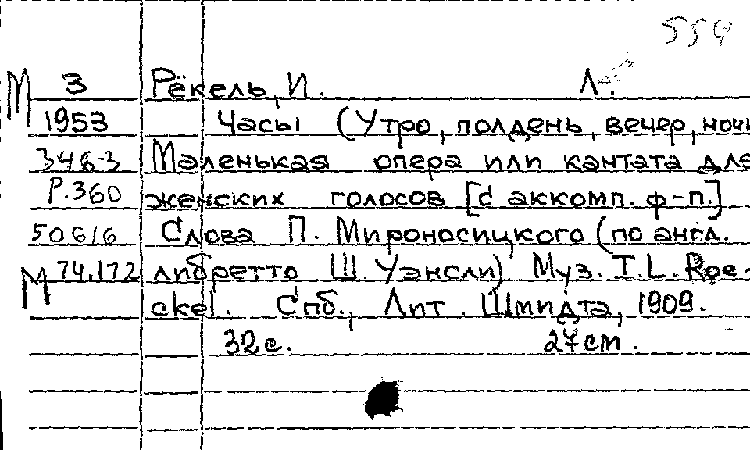 554
М 3 Рёкель, И. Л.
1953 Часы (Утро, полдень, вечер, ночь
346-3 Маленькая опера или кантата для
Р.360 женских голосов [с аккомп. ф-п.]
50616 Слова П. Мироносицкого (по англ.
М 74.172 либретто Ш Уэнсли) Муз. I. L. Roe-
ckel. Спб., Лит. Шмидта, 1909.
32 с. 27 cm.